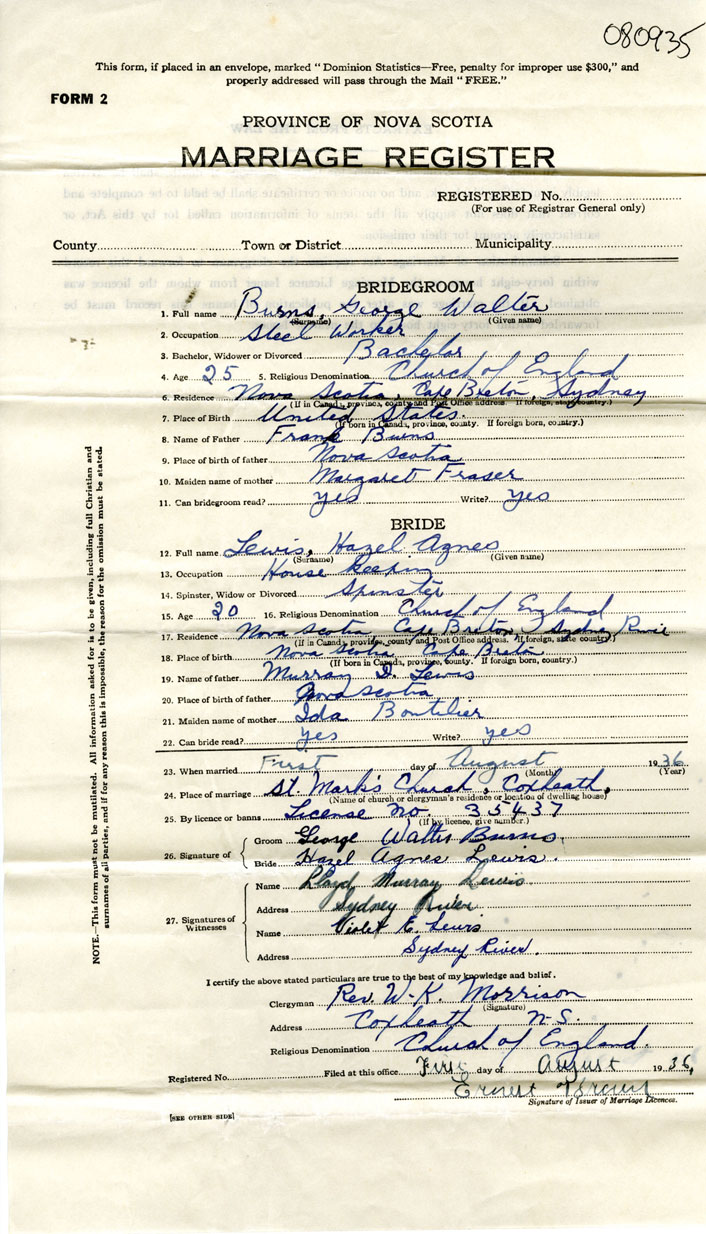 080935
This form, if placed in an envelope, marked "Dominion Statistics—Free, penalty for improper use $300," and
properly addressed will pass through the Mail "FREE."
FORM 2
PROVINCE OF NOVA SCOTIA
MARRIAGE REGISTER
REGISTERED No.
(For use of Registrar General only)
County Town or District Municipality
BRIDEGROOM
1. Full name Burns, George Walter
(Surname) (Given name)
2. Occupation Steel Worker
3. Bachelor, Widower or Divorced Bachelor
4. Age 25 5. Religious Denomination Church of England
6. Residence Nova Scotia, Cape Breton, Sydney
(If in Canada, province, county and Post Office address. If foreign, state country.)
7. Place of Birth United States.
(If born in Canada, province, county. If foreign born, country.)
8. Name of Father Frank Burns
9. Place of birth of father Nova Scotia
10. Maiden name of mother Margaret Fraser
11. Can bridegroom read? yes Write? yes
BRIDE
12. Full name Lewis, Hazel Agnes
(Surname) (Given name)
13. Occupation House Keeping
14. Spinster, Widow or Divorced Spinster
15. Age 20 16. Religious Denomination Church of England
17. Residence Nova Scotia Cape Breton, Sydney River
(If in Canada, province, county and Post Office address. If foreign, state country.)
18. Place of birth Nova Scotia Cape Breton
(If born in Canada, province, county. If foreign born, country.)
19. Name of father Murray D. Lewis
20. Place of birth of father Nova Scotia
21. Maiden name of mother Ida Boutilier
22. Can bride read? yes Write? yes
23. When married First day of August 1936
(Month) (Year)
24. Place of marriage St. Mark's Church, Coxheath,
(Name of church or clergyman's residence or location of dwelling house)
25. By licence or banns License No. 35437
(If by licence, give number.)
26. Signature of
Groom George Walter Burns.
Bride Hazel Agnes Lewis.
27. Signatures of
Witnesses
Name Lloyd Murray Lewis
Address Sydney River
Name Violet E. Lewis
Address Sydney River.
I certify the above stated particulars are true to the best of my knowledge and belief.
Clergyman Rev. W. K. Morrison
(Signature)
Address Coxheath N-S.
Religious Denomination Church of England.
Registered No. Filed at this office First day of August 1936,
Ernest
Signature of Issuer of Marriage Licences.
[SEE OTHER SIDE]
NOTE.—This form must not be mutilated. All information asked for is to be given, including full Christian and
surnames of all parties, and if for any reason this is impossible, the reason for the omission must be stated.